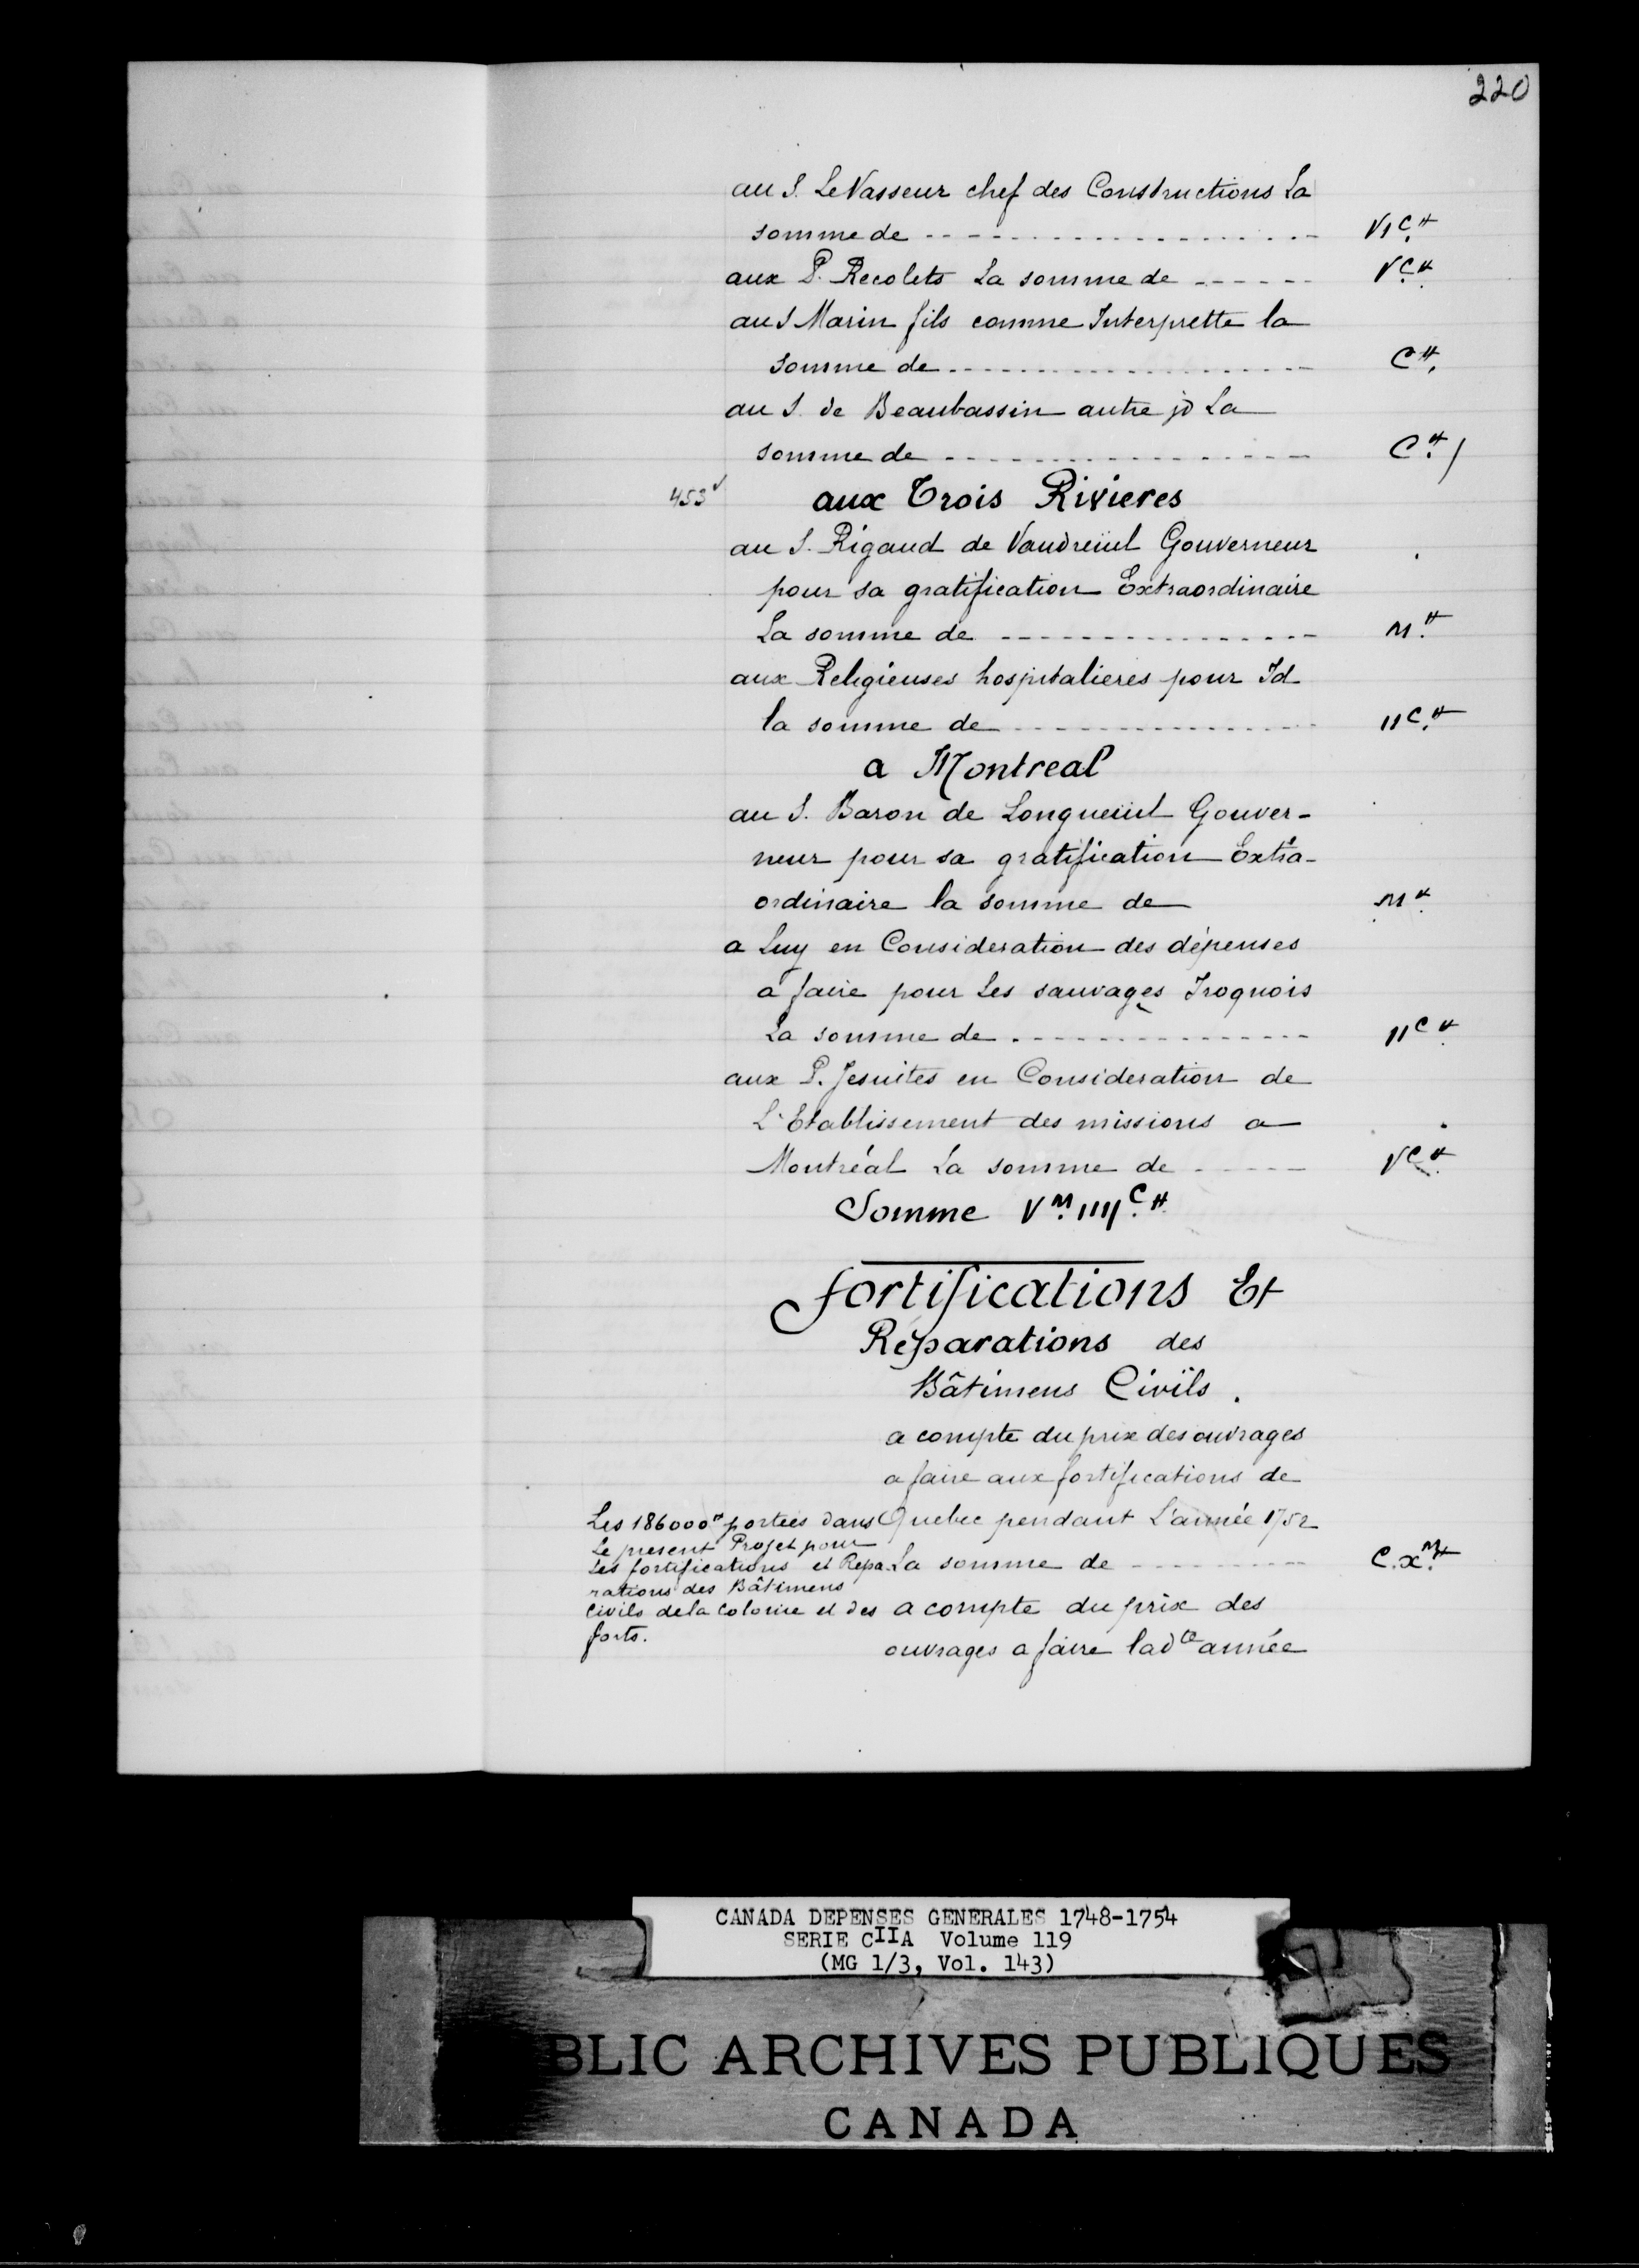 220
au S. LeVasseur chef des Constructions La
somme de - - - - - - - - VI C.ᵗᵗ
aux P. Recolets La somme de - - - - - - V C.ᵗᵗ
au S Marin fils comme Interprette la
somme de - - - - - - - - C ᵗᵗ.
au S. de Beaubassin autre jd La
somme de - - - - - - - - C.ᵗᵗ /
453ᵛ aux Trois Rivieres
au S. Rigaud de Vaudreüil Gouverneur
pour sa gratification Extraordinaire
La somme de - - - - - - - - M.ᵗᵗ
aux Religieuses hospitalieres pour Id
la somme de - - - - - - - - II C.ᵗᵗ
a Montreal
au S. Baron de Longueüil Gouver-
neur pour sa gratification Extra-
ordinaire la somme de M.ᵗᵗ
a Luy en Consideration des dépenses
a faire pour Les sauvages Iroquois
La somme de - - - - - - - - II C ᵗᵗ
aux P. Jesuites en Consideration de
L'Etablissement des missions a
Montréal La somme de - - - - - V C ᵗᵗ.
Somme V ᴹ. IIII C. ᵗᵗ
fortifications Et
Réparations des
Bâtimens Civils.
a compte du prix des ouvrages
a faire aux fortifications de
Quebec pendant L'année 1752
La somme de - - - - - - - - C.X ᴹ.ᵗᵗ
Les 186000ᵗᵗ portées dans
Le present Projet pour
Les fortifications et Repa-
rations des Bâtimens
Civils de la Colonie et des
forts.
a compte du prix des
ouvrages a faire lad.ᵗᵉ année
CANADA DEPENSES GENERALES 1748-1754
SERIE CIIA Volume 119
(MG 1/3, Vol. 143)
BLIC ARCHIVES PUBLIQUES
CANADA